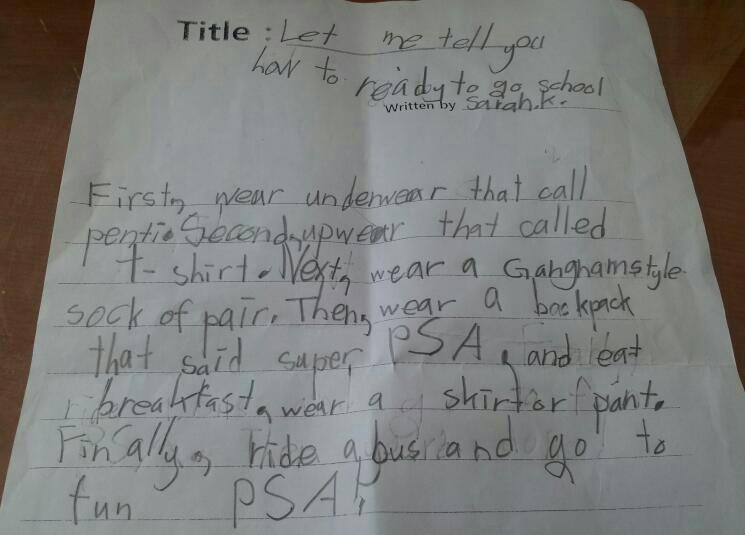 Title : Let me tell you
how to ready to go school
Written by Sarah.K.
First, wear underwear that call
penti. Second, upwear that called
T-shirt. Next, wear a Ganghamstyle
sock of pair. Then, wear a backpack
that said super PSA, and eat
breakfast, wear a skirt or pant.
Finally, ride a bus and go to
fun PSA!